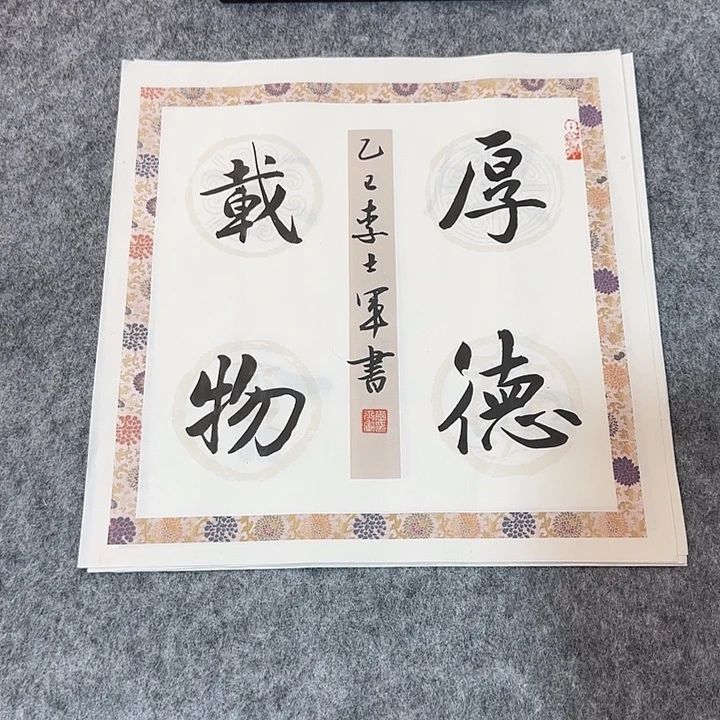 厚德
載物
乙巳李士軍書